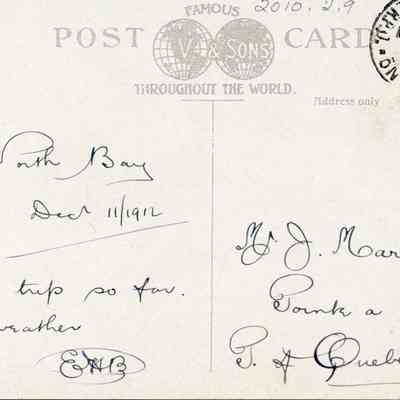 2010.2.9
FAMOUS
POST CARD
V. & SONS
THROUGHOUT THE WORLD.
Address only
North Bay
Decr 11/1912
trip so far.
weather
EHB
Mr J. Mar
Pointe a
P. Q Quebe